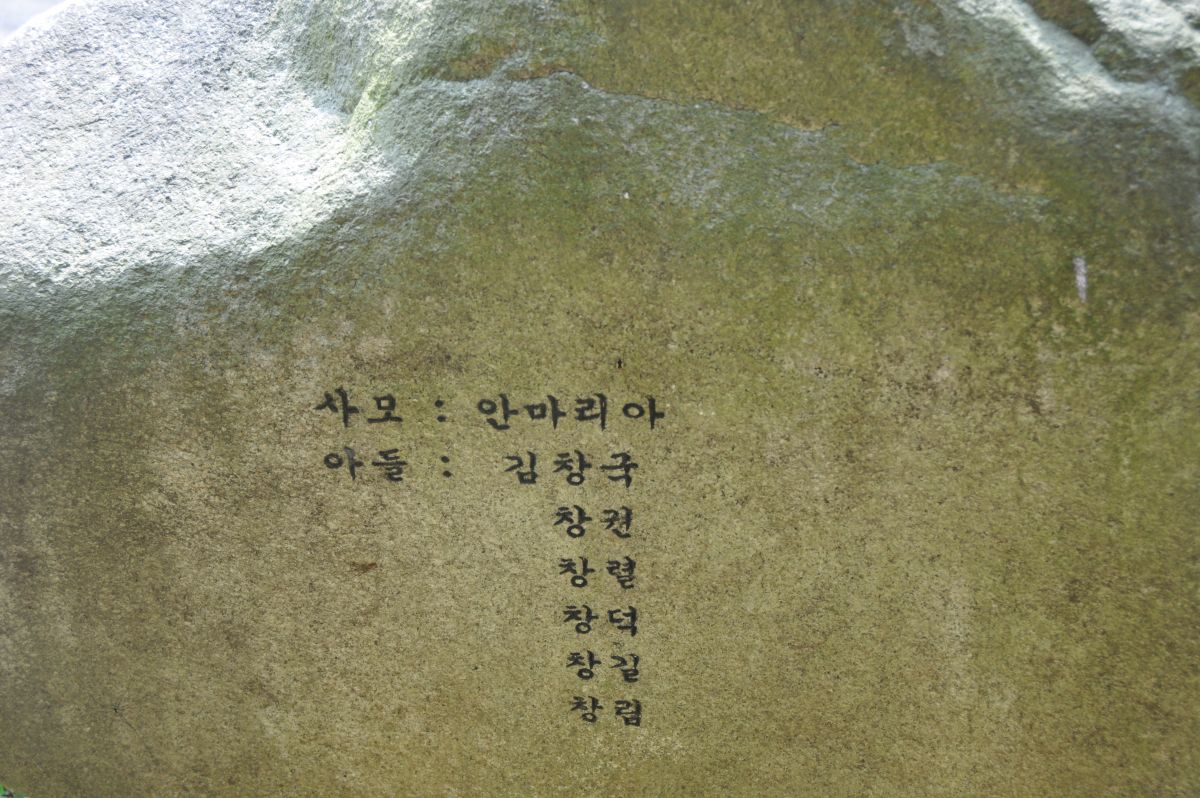 사모 : 안마리아
아들 : 김창국
창권
창렬
창덕
창길
창림